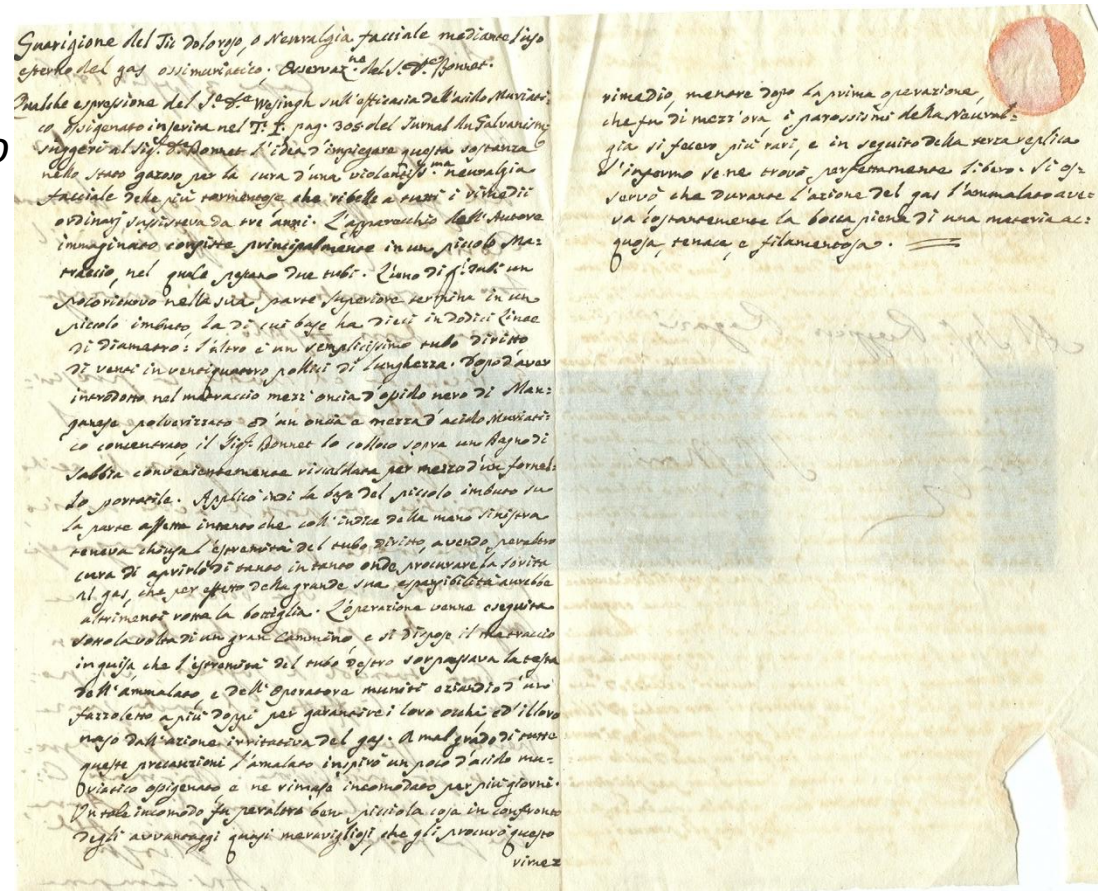 Guarigione del Tic doloroso, o Neuralgia facciale mediante l'uso
esterno del gas ossimuriatico. Osservaz.ne del S.r D.re Bonnet.
Qualche espressione del S.r D.re Wesingh sull'efficacia dell'acido Muriati:
co ossigenato inserita nel T. I. pag. 305 del Jurnal du Galvanism
suggerì al Sig.r D.re Bonnet l'idea d'impiegare questa sostanza
nello stato gazoso per la cura d'una violentiss.ma neuralgia
facciale delle più tormentose che ribelle a tutti i rimedii
ordinarj sussisteva da tre anni. L'apparecchio dell'Autore
immaginato consiste principalmente in un piccolo Ma:
traccio, nel quale pescano due tubi. L'uno di q.i tubi un
poco ricurvo nella sua parte superiore termina in un
piccolo imbuto, la di cui base ha dieci in dodici Linee
di diametro: l'altro è un semplicissimo tubo diritto
di venti in ventiquatro pollici di lunghezza. Dopo d'aver
introdotto nel matraccio mezz'oncia d'ossido nero di Man:
ganese polverizzato ed un'oncia e mezza d'acido Muriati:
co concentrato il Sig.r Bonnet lo colloco sopra un Bagno di
Sabbia convenientemente riscaldata per mezzo d'un fornel:
lo portatile. Applicò indi la base del piccolo imbuto su
la parte affetta intanto che coll'indice della mano sinistra
teneva chiusa l'estremità del tubo diritto, avendo peraltro
cura di aprirlo di tanto in tanto onde procurare la sortita
al gas, che per effetto della grande sua espansibilità avrebbe
altrimenti rotta la bottiglia. L'operazione venne eseguita
sotto la volta di un gran Cammino e si dispose il matraccio
in guisa che l'estremità del tubo destro sorpassava la testa
dell'ammalato, e dell'Operatore muniti eziandio d'uno
fazzoletto a più doppi per garantire i loro occhi, ed il loro
naso dall'azione irritativa del gas. A malgrado di tutte
queste precauzioni l'amalato inspirò un poco d'acido mu:
riatico ossigenato e ne rimase incomodato per più giorni.
Un tale incomodo fu peraltro ben picciola cosa in confronto
degli avvantaggi quasi meravigliosi, che gli procurò questo
rimez
rimedio, mentre dopo la prima operazione,
che fu di mezz'ora i parossismi della Neural:
gia si fecero più rari, e in seguito della terza replica
l'infermo se ne trovò perfettamente libero. Si os:
servò che durante l'azione del gas l'ammalato ave:
va costantemente la bocca piena di una materia ac:
quosa, tenace, e filamentosa.